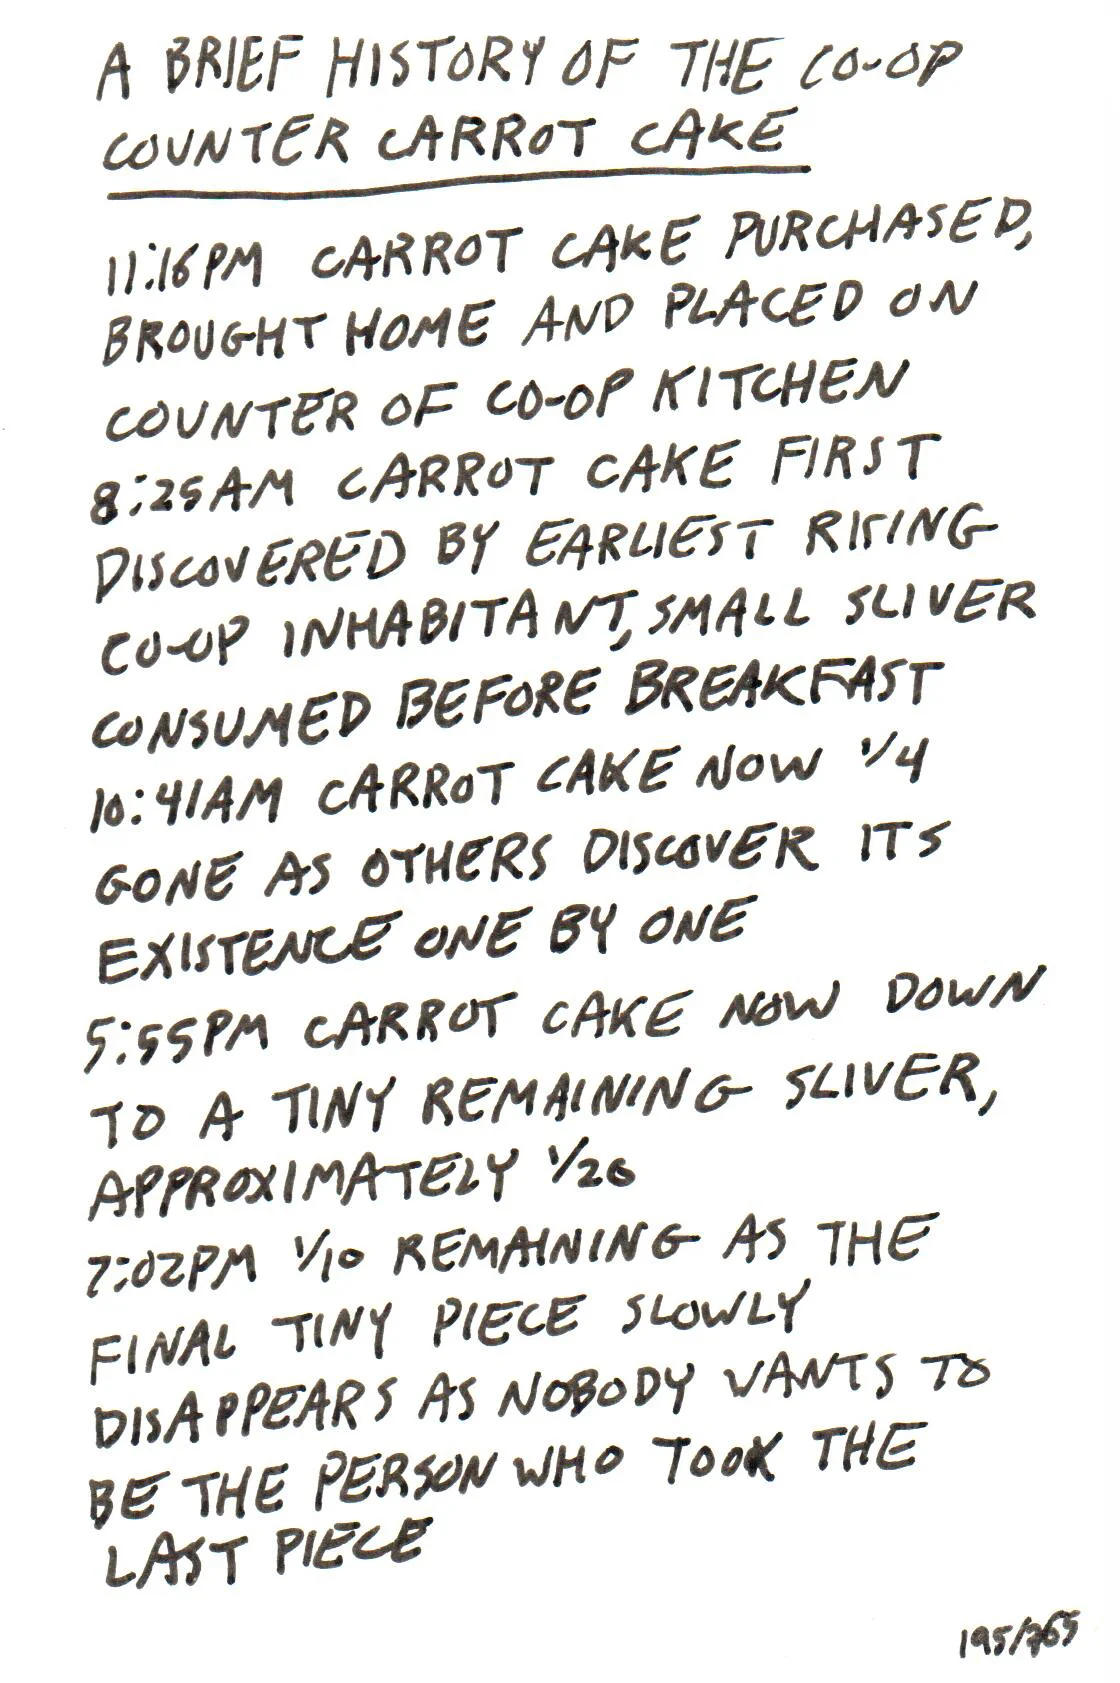 A BRIEF HISTORY OF THE CO-OP
COUNTER CARROT CAKE
11:16PM CARROT CAKE PURCHASED,
BROUGHT HOME AND PLACED ON
COUNTER OF CO-OP KITCHEN
8:25AM CARROT CAKE FIRST
DISCOVERED BY EARLIEST RISING
CO-OP INHABITANT, SMALL SLIVER
CONSUMED BEFORE BREAKFAST
10:41AM CARROT CAKE NOW 1/4
GONE AS OTHERS DISCOVER ITS
EXISTENCE ONE BY ONE
5:55PM CARROT CAKE NOW DOWN
TO A TINY REMAINING SLIVER,
APPROXIMATELY 1/20
7:02PM 1/10 REMAINING AS THE
FINAL TINY PIECE SLOWLY
DISAPPEARS AS NOBODY WANTS TO
BE THE PERSON WHO TOOK THE
LAST PIECE
195/365